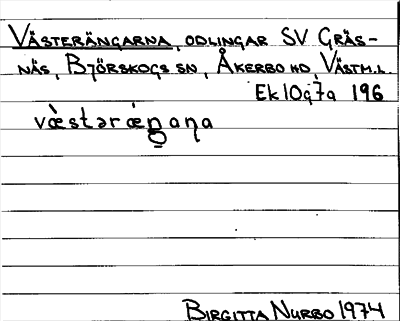 VÄSTERÄNGARNA, ODLINGAR SV GRÄS-
NÄS, BJÖRSKOGS SN, ÅKERBO HD, VÄSTM.L.
Ek 10g7a 196
væ̀stərǽŋana
BIRGITTA NURBO 1974